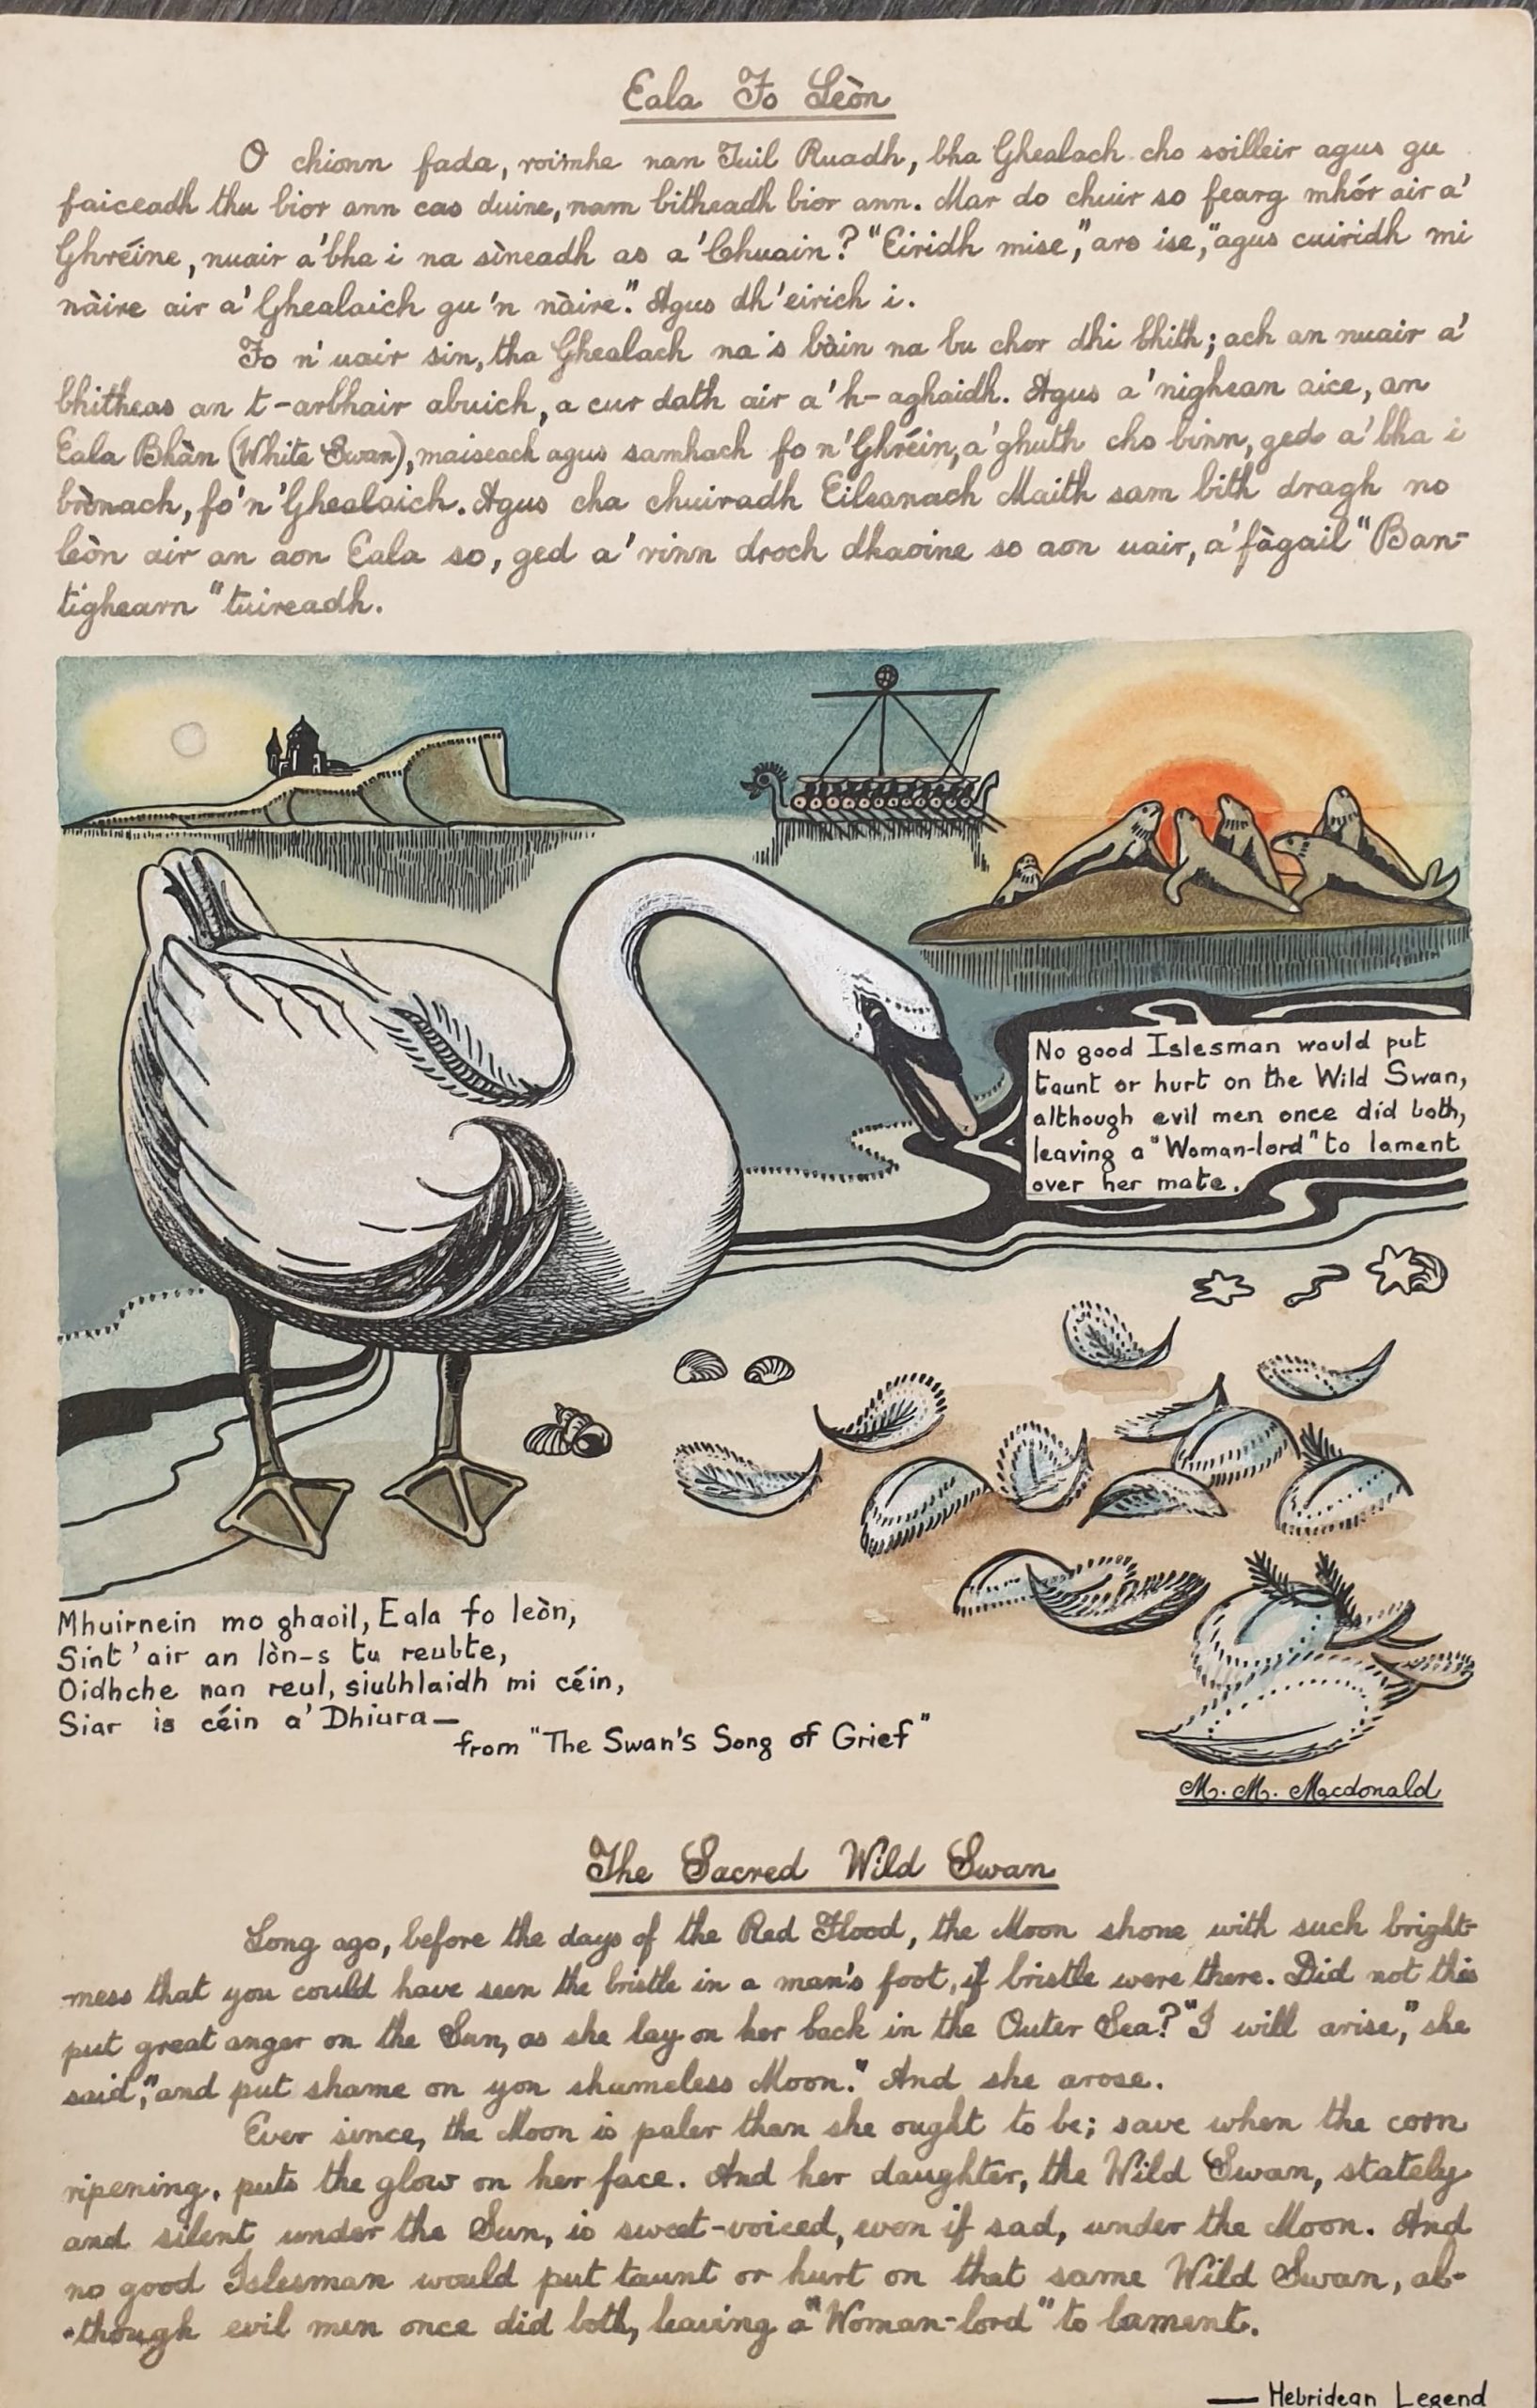 Eala Fo Leòn
O chionn fada, roimhe nan Tuil Ruadh, bha Ghealach cho soilleir agus gu
faiceadh thu bior ann cas duine, nam bitheadh bior ann. Mar do chuir so fearg mhór air a'
Ghréine, nuair a' bha i na sìneadh as a' Chuain? "Eiridh mise," ars ise, "agus cuiridh mi
nàire air a' Ghealaich gu 'n nàire." Agus dh' eirich i.
Fo n' uair sin, tha Ghealach na 's bàin na bu chor dhi bhith; ach an nuair a'
bhitheas an t-arbhair abuich, a cur dath air a' h-aghaidh. Agus a' nighean aice, an
Eala Bhàn (White Swan), maiseach agus samhach fo n' Ghréin, a' ghuth cho binn, ged a' bha i
brònach, fo 'n 'Ghealaich. Agus cha chuiradh Eileanach Maith sam bith dragh no
leòn air an aon Eala so, ged a' rinn droch dhaoine so aon uair, a' fàgail "Ban-
tighearn" tuireadh.
No good Islesman would put
taunt or hurt on the Wild Swan,
although evil men once did both,
leaving a "Woman-lord" to lament
over her mate.
Mhuirnein mo ghaoil, Eala fo leòn,
Sint' air an lòn-s tu reubte,
Oidhche nan reul, siubhlaidh mi céin,
Siar is céin a' Dhiura—
from "The Swan's Song of Grief"
M. M. Macdonald
The Sacred Wild Swan
Long ago, before the days of the Red Flood, the Moon shone with such bright-
-ness that you could have seen the bristle in a man's foot, if bristle were there. Did not this
put great anger on the Sun, as she lay on her back in the Outer Sea? "I will arise," she
said, "and put shame on yon shameless Moon." And she arose.
Ever since, the Moon is paler than she ought to be; save when the corn
ripening, puts the glow on her face. And her daughter, the Wild Swan, stately
and silent under the Sun, is sweet-voiced, even if sad, under the Moon. And
no good Islesman would put taunt or hurt on that same Wild Swan, al-
-though evil men once did both, leaving a "Woman-lord" to lament.
— Hebridean Legend